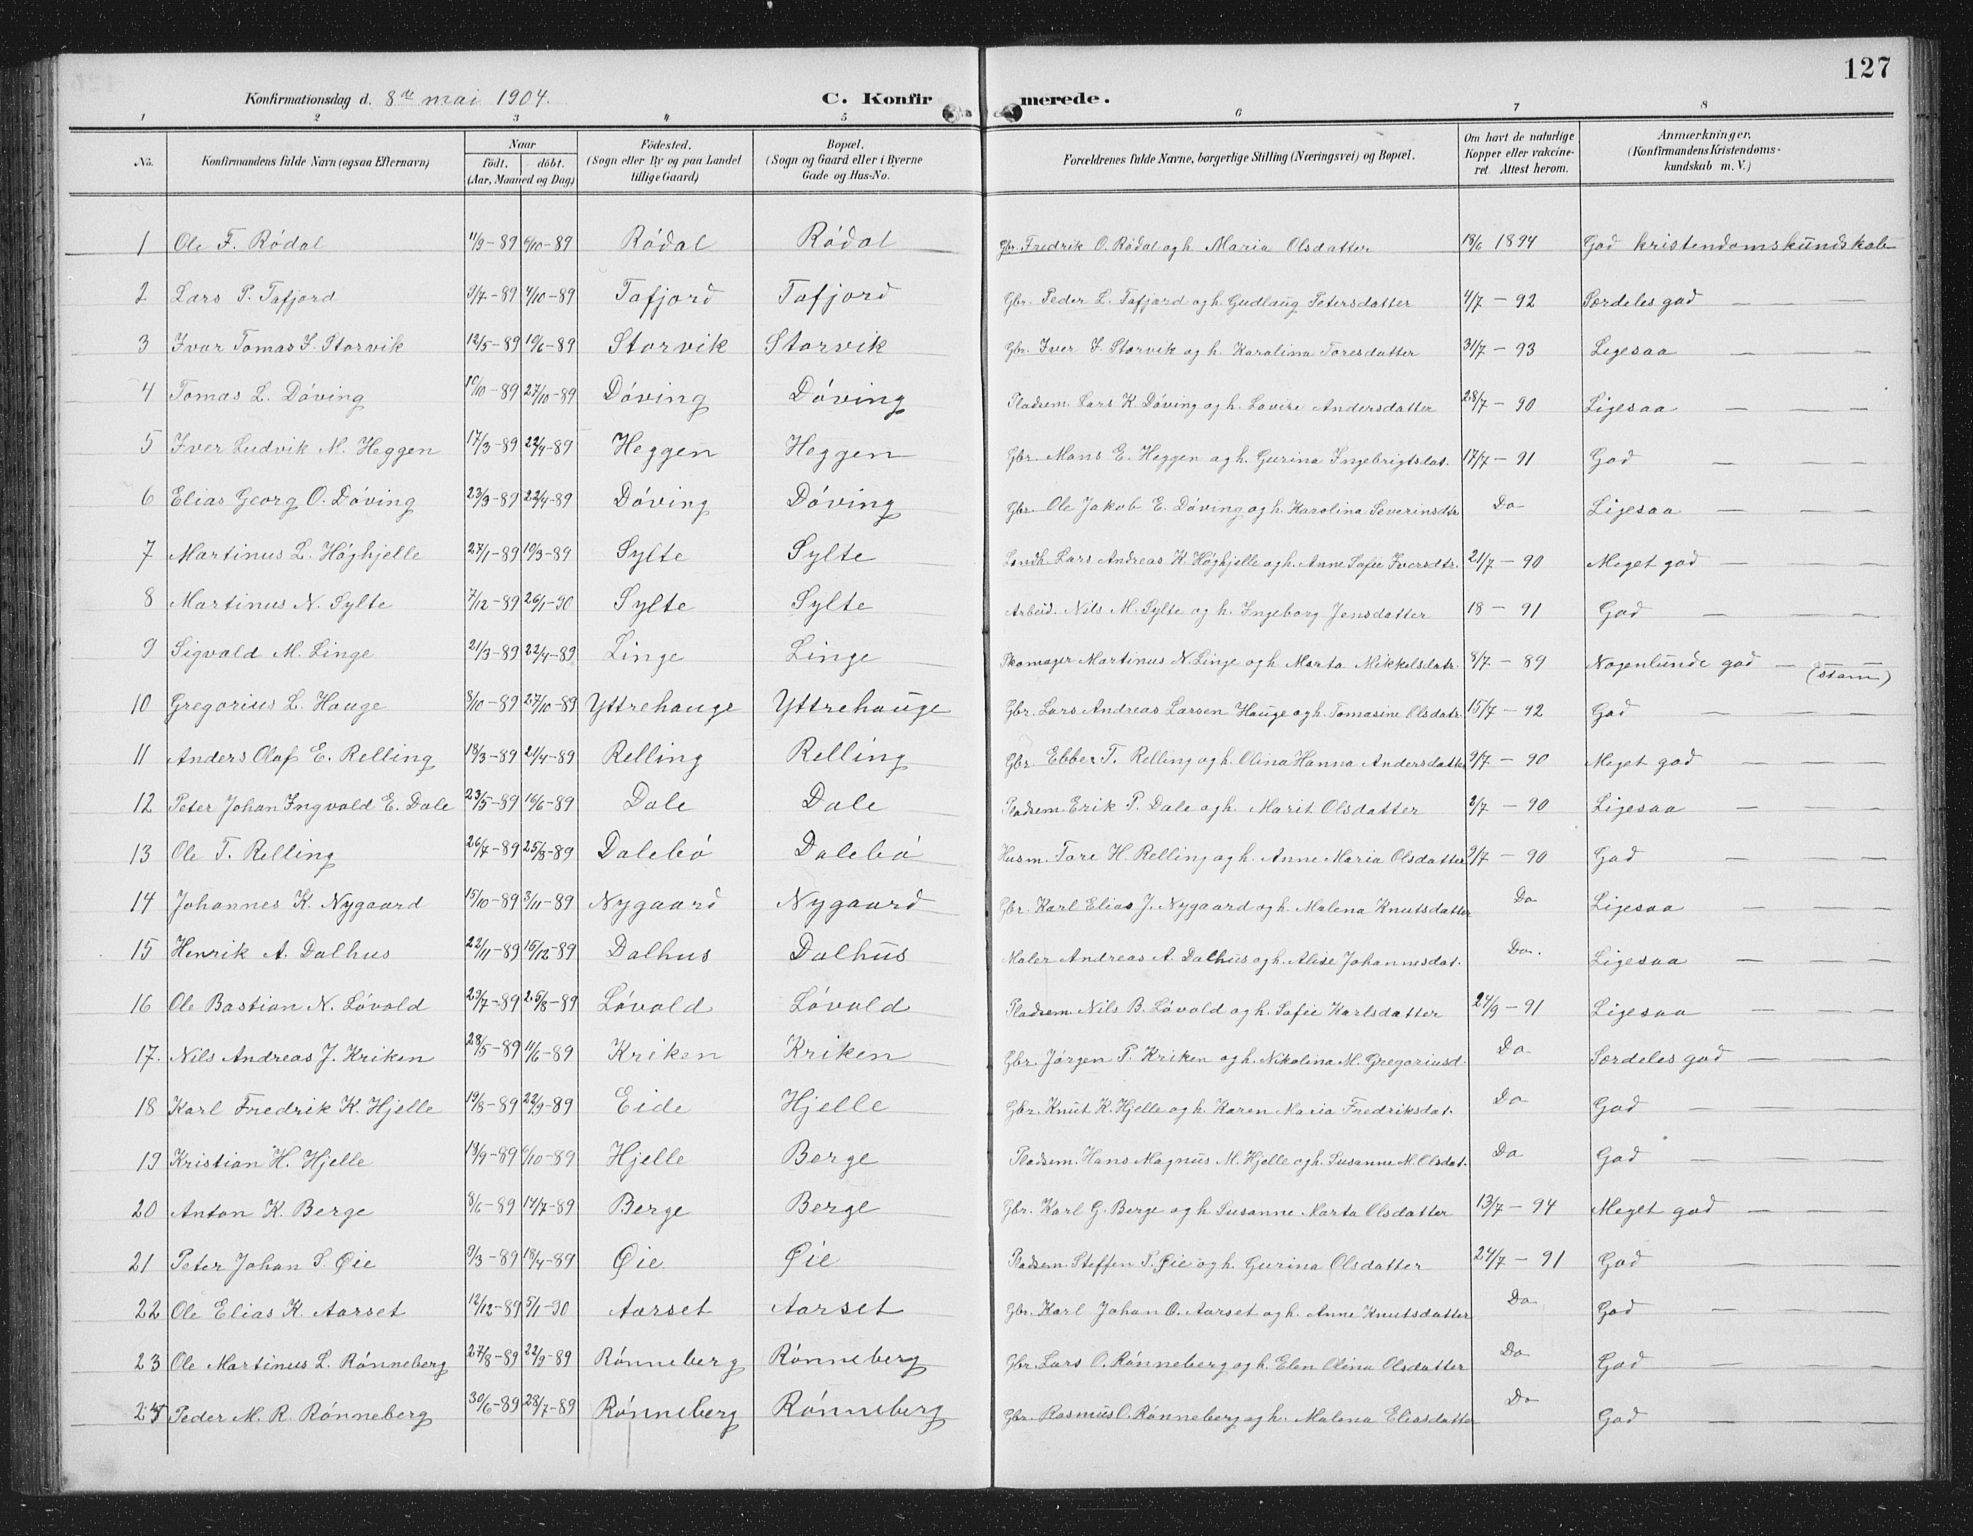 127
Konfirmationsdag d. 8de mai 1904. C. Konfirmerede.
1 2 3 4 5 6 7 8
No. Konfirmandens fulde Navn (ogsaa Efternavn) Naar født. døbt. (Aar, Maaned og Dag) Fødested. (Sogn eller By og paa Landet tillige Gaard) Bopæl. (Sogn og Gaard eller i Byerne Gade og Hus-No. Forældrenes fulde Navne, borgerlige Stilling (Næringsvei) og Bopæl. Om havt de naturlige Kopper eller vakcineret. Attest herom. Anmærkninger. (Konfirmandens Kristendomskundskab m. V.)
1 Ole F. Rødal 11/9-89 6/10-89 Rødal Rødal Gbr. Fredrik O. Rødal og h. Maria Olsdatter 18/6 1894 God kristendomskundskab
2 Lars P. Tafjord 9/7-89 4/10-89 Tafjord Tafjord Gbr. Peder L. Tafjord og h. Gudlaug Petersdatter 4/7 - 92 Særdeles god — — —
3 Ivar Tomas I. Storvik 12/5-89 10/6-89 Storvik Storvik Gbr. Iver I. Storvik og h. Karolina Toresdatter 31/7 - 93 Ligesaa — — —
4 Tomas L. Døving 10/10-89 27/10-89 Døving Døving Pladsem. Lars K. Døving og h. Lovise Andersdatter 28/7 - 90 Ligesaa — — —
5 Iver Ludvik M. Heggen 17/3-89 22/4-89 Heggen Heggen Gbr. Mons E. Heggen og h. Gurina Ingebrigtsdat. 17/7 - 91 God — — —
6 Elias Georg O. Døving 23/3-89 22/4-89 Døving Døving Gbr. Ole Jakob E. Døving og h. Karolina Severinsdtr Do Ligesaa — — —
7 Martinus L. Høghjelle 27/1-89 10/3-89 Sylte Sylte Landh. Lars Andreas K. Høghjelle og h. Anne Sofie Iversdtr. 21/7 - 90 Meget god — — —
8 Martinus N. Sylte 7/12-89 26/1-90 Sylte Sylte Arbeid. Nils M. Sylte og h. Ingeborg Jensdatter 18 - 91 God — — —
9 Sigvald M. Linge 21/3-89 22/4-89 Linge Linge Skomager Martinus N. Linge og h. Marta Mikkelsdatr. 8/7 - 89 Nogenlunde god — — (stam)
10 Gregorius L. Hauge 8/10-89 27/10-89 Yttrehauge Yttrehauge Gbr. Lars Andreas Larsen Hauge og h. Tomasine Olsdatr. 15/7 - 92 God — — —
11 Anders Olaf E. Relling 18/3-89 21/4-89 Relling Relling Gbr. Ebbe T. Relling og h. Olina Hanna Andersdatter 9/7 - 90 Meget god — — —
12 Peter Johan Ingvald E. Dale 23/5-89 16/6-89 Dale Dale Pladsem. Erik P. Dale og h. Marit Olsdatter 2/7 - 90 Ligesaa — — —
13 Ole T. Relling 26/7-89 25/8-89 Dalebø Dalebø Husm. Tore H. Relling og h. Anne Maria Olsdatter 9/7 - 90 God — — —
14 Johannes K. Nygaard 15/10-89 3/11-89 Nygaard Nygaard Gbr. Karl Elias J. Nygaard og h. Malena Knutsdatter Do Ligesaa — — —
15 Henrik A. Dalhus 22/11-89 15/12-89 Dalhus Dalhus Maler Andreas A. Dalhus og h. Alise Johannesdat. Do. Ligesaa — — —
16 Ole Bastian N. Løvold 23/7-89 25/8-89 Løvold Løvold Pladsem. Nils B. Løvold og h. Sofie Karlsdatter 24/9 - 91 Ligesaa — — —
17. Nils Andreas J. Kriken 28/5-89 11/6-89 Kriken Kriken Gbr. Jørgen P. Kriken og h. Nikolina M. Gregoriusd. Do Særdeles god — — —
18 Karl Fredrik K. Hjelle 19/8-89 22/9-89 Eide Hjelle Gbr. Knut K. Hjelle og h. Karen Maria Fredriksdat. Do God — — —
19 Kristian H. Hjelle 19/9-89 6/10-89 Hjelle Berge Pladsem. Hans Magnus M. Hjelle og h. Susanne M. Olsdat. Do God — — —
20 Anton K. Berge 8/6-89 14/7-89 Berge Berge Gbr. Karl G. Berge og h. Susanne Marta Olsdatter 13/7 - 94 Meget god — — —
21 Peter Johan S. Øie 9/3-89 18/4-89 Øie Øie Pladsem. Steffen P. Øie og h. Gurina Olsdatter 24/7 - 91 God — — —
22 Ole Elias K. Aarset 12/12-89 5/1-90 Aarset Aarset Gbr. Karl Johan O. Aarset og h. Anne Knutsdatter Do God — — —
23 Ole Martinus L. Rønneberg 27/8-89 22/9-89 Rønneberg Rønneberg Gbr. Lars O. Rønneberg og h. Elen Olina Olsdatter Do God — — —
24 Peder M. R. Rønneberg 30/6-89 28/7-89 Rønneberg Rønneberg Gbr. Rasmus O. Rønneberg og h. Malena Eliasdatter Do God — — —